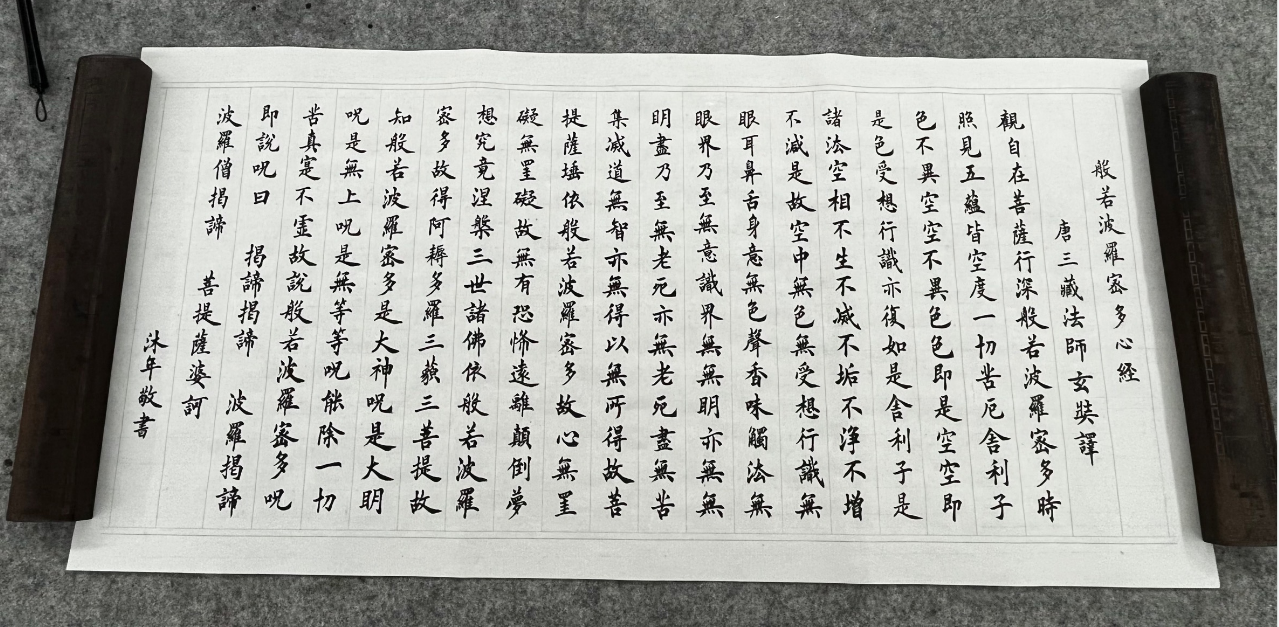 般若波羅蜜多心經
唐三藏法師玄奘譯
觀自在菩薩行深般若波羅蜜多時
照見五蘊皆空度一切苦厄舍利子
色不異空空不異色色即是空空即
是色受想行識亦復如是舍利子是
諸法空相不生不滅不垢不淨不增
不減是故空中無色無受想行識無
眼耳鼻舌身意無色聲香味觸法無
眼界乃至無意識界無無明亦無無
明盡乃至無老死亦無老死盡無苦
集滅道無智亦無得以無所得故菩
提薩埵依般若波羅蜜多故心無罣
礙無罣礙故無有恐怖遠離顛倒夢
想究竟涅槃三世諸佛依般若波羅
蜜多故得阿耨多羅三藐三菩提故
知般若波羅蜜多是大神呪是大明
呪是無上呪是無等等呪能除一切
苦真寔不虛故說般若波羅蜜多呪
即說呪曰 揭諦揭諦 波羅揭諦
波羅僧揭諦 菩提薩婆訶
沐年敬書